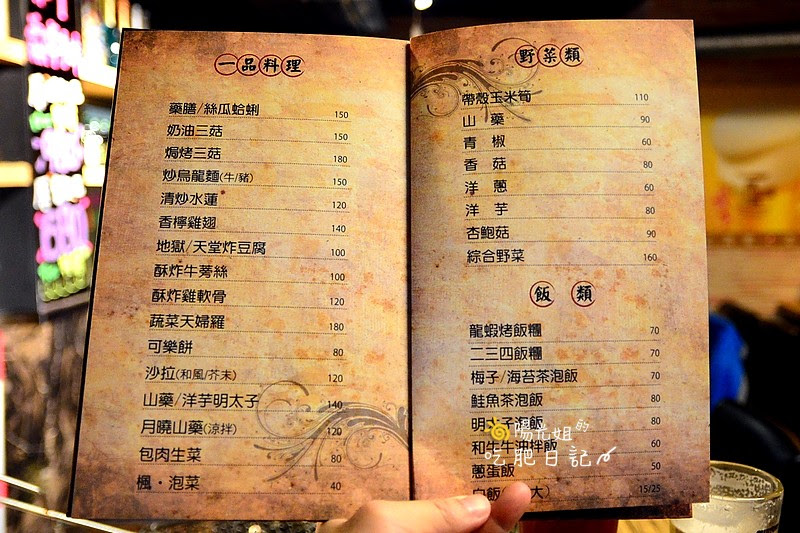 一品料理
藥膳/絲瓜蛤蜊 150
奶油三菇 150
焗烤三菇 180
炒烏龍麵(牛/豬) 150
清炒水蓮 120
香檸雞翅 140
地獄/天堂炸豆腐 100
酥炸牛蒡絲 100
酥炸雞軟骨 120
蔬菜天婦羅 180
可樂餅 80
沙拉(和風/芥末) 120
山藥/洋芋明太子 140
月曉山藥(涼拌) 120
包肉生菜 80
楓・泡菜 40
野菜類
帶殼玉米筍 110
山藥 90
青椒 60
香菇 80
洋蔥 60
洋芋 80
杏鮑菇 90
綜合野菜 160
飯類
龍蝦烤飯糰 70
二三四飯糰 70
梅子/海苔茶泡飯 70
鮭魚茶泡飯 80
明太子泡飯 80
和牛牛油拌飯 60
蔥蛋飯 50
白飯 大) 15/25
陽光姐的
吃肥日記